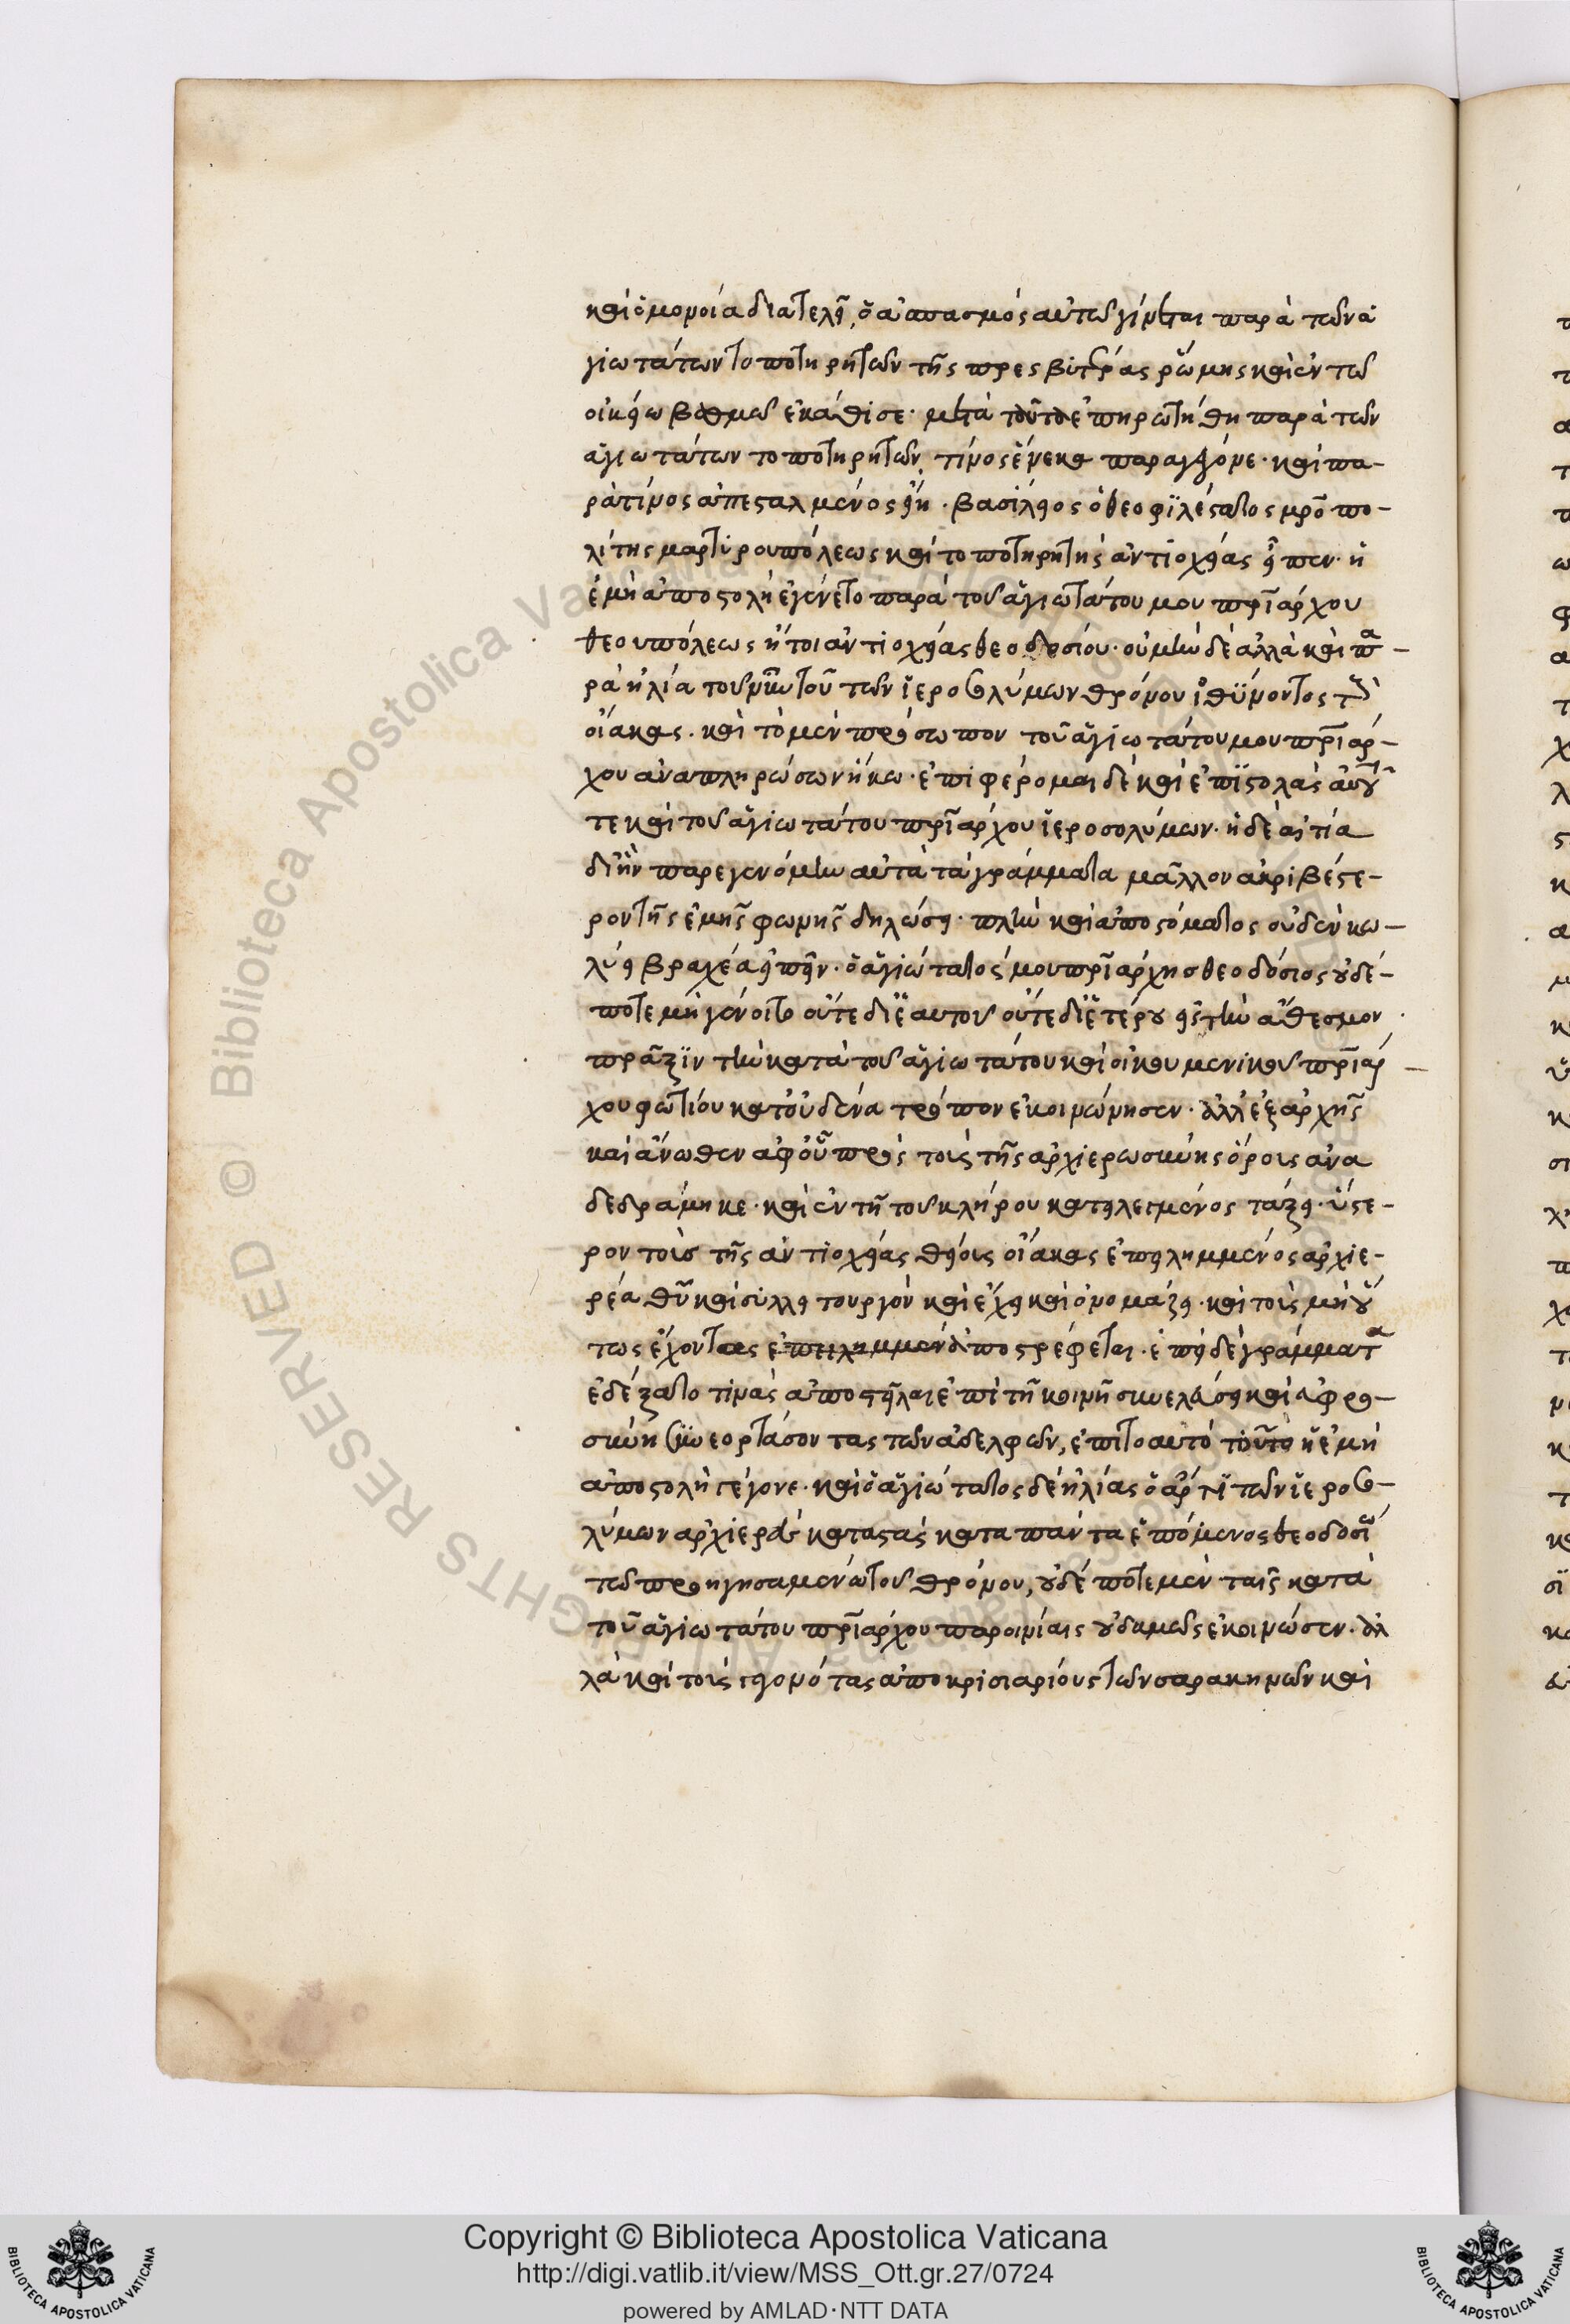 καὶ ὁμονοία διατελεῖ, ὁ ἀσπασμὸς αὐτῶ γίνεται παρὰ τῶν ἁ
γιωτάτων τοποτηρητῶν τῆς πρεσβυτέρας ῥώμης καὶ ἐν τῶ
οἰκείω βαθμῶ ἐκάθισε· μετὰ τοῦτο ἐπηρωτήθη παρὰ τῶν
ἁγιωτάτων τοποτηρητῶν, τίνος ἕνεκα παραγέγονε· καὶ πα-
ρὰ τίνος ἀπεσταλμένος εἴη· βασίλειος ὁ θεοφιλέστατος μρ̅οπο-
λίτης μαρτυρουπόλεως καὶ τοποτηρητὴς ἀντιοχείας εἶπεν· ἡ
ἐμὴ ἀποστολὴ ἐγένετο παρὰ τοῦ ἁγιωτάτου μου πρ̅ιάρχου
θεουπόλεως ἤτοι ἀντιοχείας θεοδοσίου· οὐ μὴν δὲ ἀλλὰ καὶ πα-
ρὰ ἠλία τοῦ νῦν τοῦ τῶν ἱεροσολύμων θρόνου ἰθύνοντος τοὺς
οἴακας· καὶ τὸ μὲν πρόσωπον τοῦ ἁγιωτάτου μου πρ̅ιάρ-
χου ἀναπληρώσων ἥκω· ἐπιφέρομαι δὲ καὶ ἐπιστολὰς αὐτοῦ
τε καὶ τοῦ ἁγιωτάτου πρ̅ιάρχου ἱεροσολύμων· ἡ δὲ αἰτία
δι ἣν παρεγενόμην αὐτὰ τὰ γράμματα μᾶλλον ἀκριβέστε-
ρον τῆς ἐμῆς φωνῆς δηλώσει· πλὴν καὶ ἀπὸ στόματος οὐδὲν κω-
λύει βραχέα εἰπεῖν· ὁ ἁγιώτατός μου πρ̅ιάρχης θεοδόσιος οὐδέ-
ποτε μὴ γένοιτο οὔτε δι ἑαυτοῦ οὔτε δι ἑτέρου εἰς τὴν ἄθεσμον
πρᾶξιν τὴν κατὰ τοῦ ἁγιωτάτου καὶ οἰκουμενικοῦ πρ̅ιάρ-
χου φωτίου κατ οὐδένα τρόπον ἐκοινώνησεν· ἀλλ ἐξ ἀρχῆς
καὶ ἄνωθεν ἀφ οὗ πρὸς τοὺς τῆς ἀρχιερωσύνης ὅρους ἀνα
δεδράμηκε· καὶ ἐν τῆ τοῦ κλήρου κατειλεγμένος τάξει· ὕστε-
ρον τοὺσ τῆς ἀντιοχείας θείους οἴακας ἐπειλημμένος ἀρχιε-
ρέα θῦ καὶ συλλειτουργὸν καὶ ἔχει καὶ ὀνομάζει· καὶ τοὺς μὴ οὕ
τως ἔχοντας ἀποστρέφεται· ἐπεὶ δὲ γράμματα
ἐδέξατο τινὰς ἀποστεῖλαι ἐπὶ τῆ κοινῆ συνελεύσει καὶ εὐφρο-
σύνη συνεορτάσοντας τῶν ἀδελφῶν, ἐπὶ τὸ αὐτὸ τοῦτο ἡ ἐμὴ
ἀποστολὴ γέγονε· καὶ ὁ ἁγιώτατος δὲ ἠλίας ὁ ἄρτι τῶν ἱεροσο-
λύμων ἀρχιερεὺς καταστὰς κατὰ πάντα ἑπόμενος θεοδοσίω
τῶ προηγησαμένω τοῦ θρόνου, οὐδέποτε μὲν ταῖς κατὰ
τοῦ ἁγιωτάτου πρ̅ιάρχου παροινίαις οὐδαμῶς ἐκοινώσεν· ἀλ
λὰ καὶ τοὺς γεγονότας ἀποκρισιαρίους τῶν σαρακηνῶν καὶ
Copyright © Biblioteca Apostolica Vaticana
http://digi.vatlib.it/view/MSS_Ott.gr.27/0724
powered by AMLAD·NTT DATA